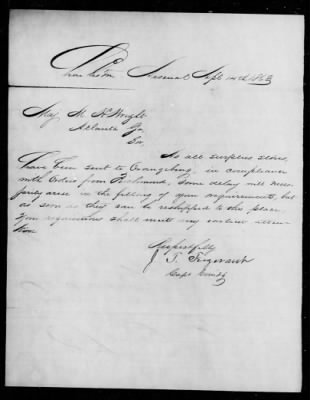 Charleston Arsenal Sept 14th 1863
Maj M. H. Wright
Atlanta Ga
Sir
As all surplus stores,
have been sent to Orangeburg, in compliance
with Orders from Richmond, some delay will neces-
sarily arise in the filling of your requirements, but
as soon as they can be reshipped to this place
your requisitions shall meet my earliest atten-
tion
Respectfully
J. T. Trezevant
Capt Comdg